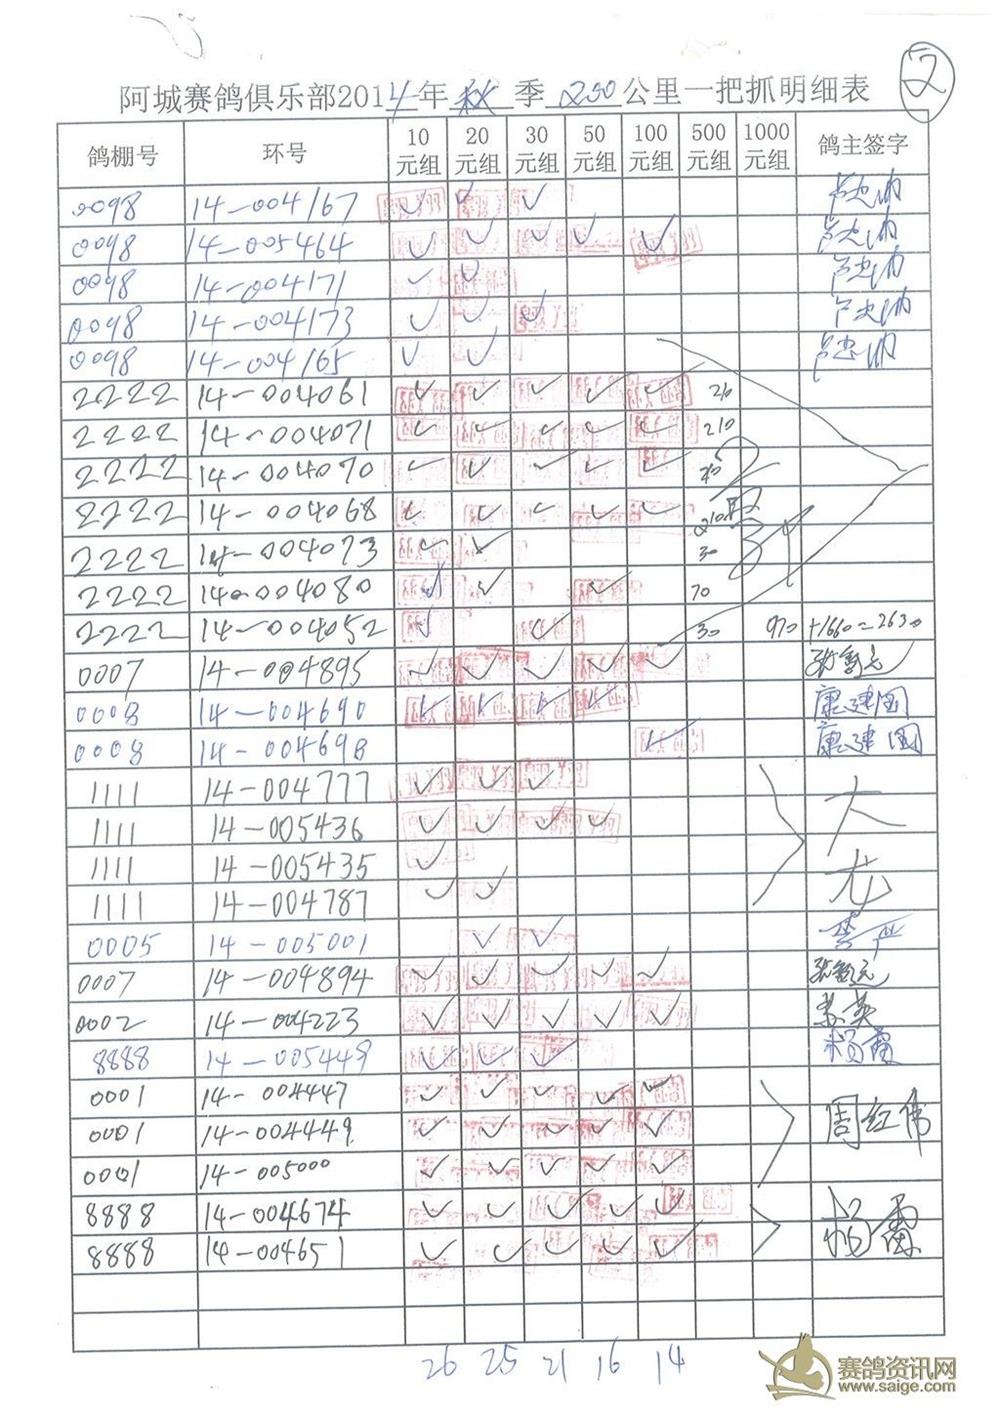 ②
阿城赛鸽俱乐部2014年 秋 季 200 公里一把抓明细表
鸽棚号 环号 10元组 20元组 30元组 50元组 100元组 500元组 1000元组 鸽主签字
0098 14-004167 ✓ ✓ ✓
0098 14-005464 ✓ ✓ ✓ ✓ ✓
0098 14-004171 ✓ ✓
0098 14-004173 ✓ ✓ ✓
0098 14-004165 ✓ ✓
2222 14-004061 ✓ ✓ ✓ ✓ ✓ 210
2222 14-004071 ✓ ✓ ✓ ✓ ✓ 210
2222 14-004070 ✓ ✓ ✓ ✓ ✓ 210
2222 14-004068 ✓ ✓ ✓ ✓ ✓ 210
2222 14-004073 ✓ ✓ 30
2222 14-004080 ✓ ✓ ✓ 70
2222 14-004052 ✓ ✓ 30 970 +1660=2630
0007 14-004895 ✓ ✓ ✓ ✓ ✓
0008 14-004690 ✓ ✓ ✓ ✓ 康建国
0008 14-004698 ✓ 康建国
1111 14-004777 ✓ ✓ ✓
1111 14-005436 ✓ ✓ ✓ ✓ 大
1111 14-005435 ✓
1111 14-004787 ✓ ✓ 龙
0005 14-005001 ✓ ✓
0007 14-004894 ✓ ✓ ✓ ✓ ✓
0002 14-004223 ✓ ✓ ✓ ✓ ✓
8888 14-005449 ✓ ✓ ✓
0001 14-004447 ✓ ✓ ✓ ✓ ✓
0001 14-004449 ✓ ✓ ✓ ✓ ✓ 周红伟
0001 14-005000 ✓ ✓ ✓ ✓ ✓
8888 14-004674 ✓ ✓ ✓ ✓ ✓
8888 14-004651 ✓ ✓ ✓ ✓ ✓
26 25 21 16 14
赛鸽资讯网
www.saige.com